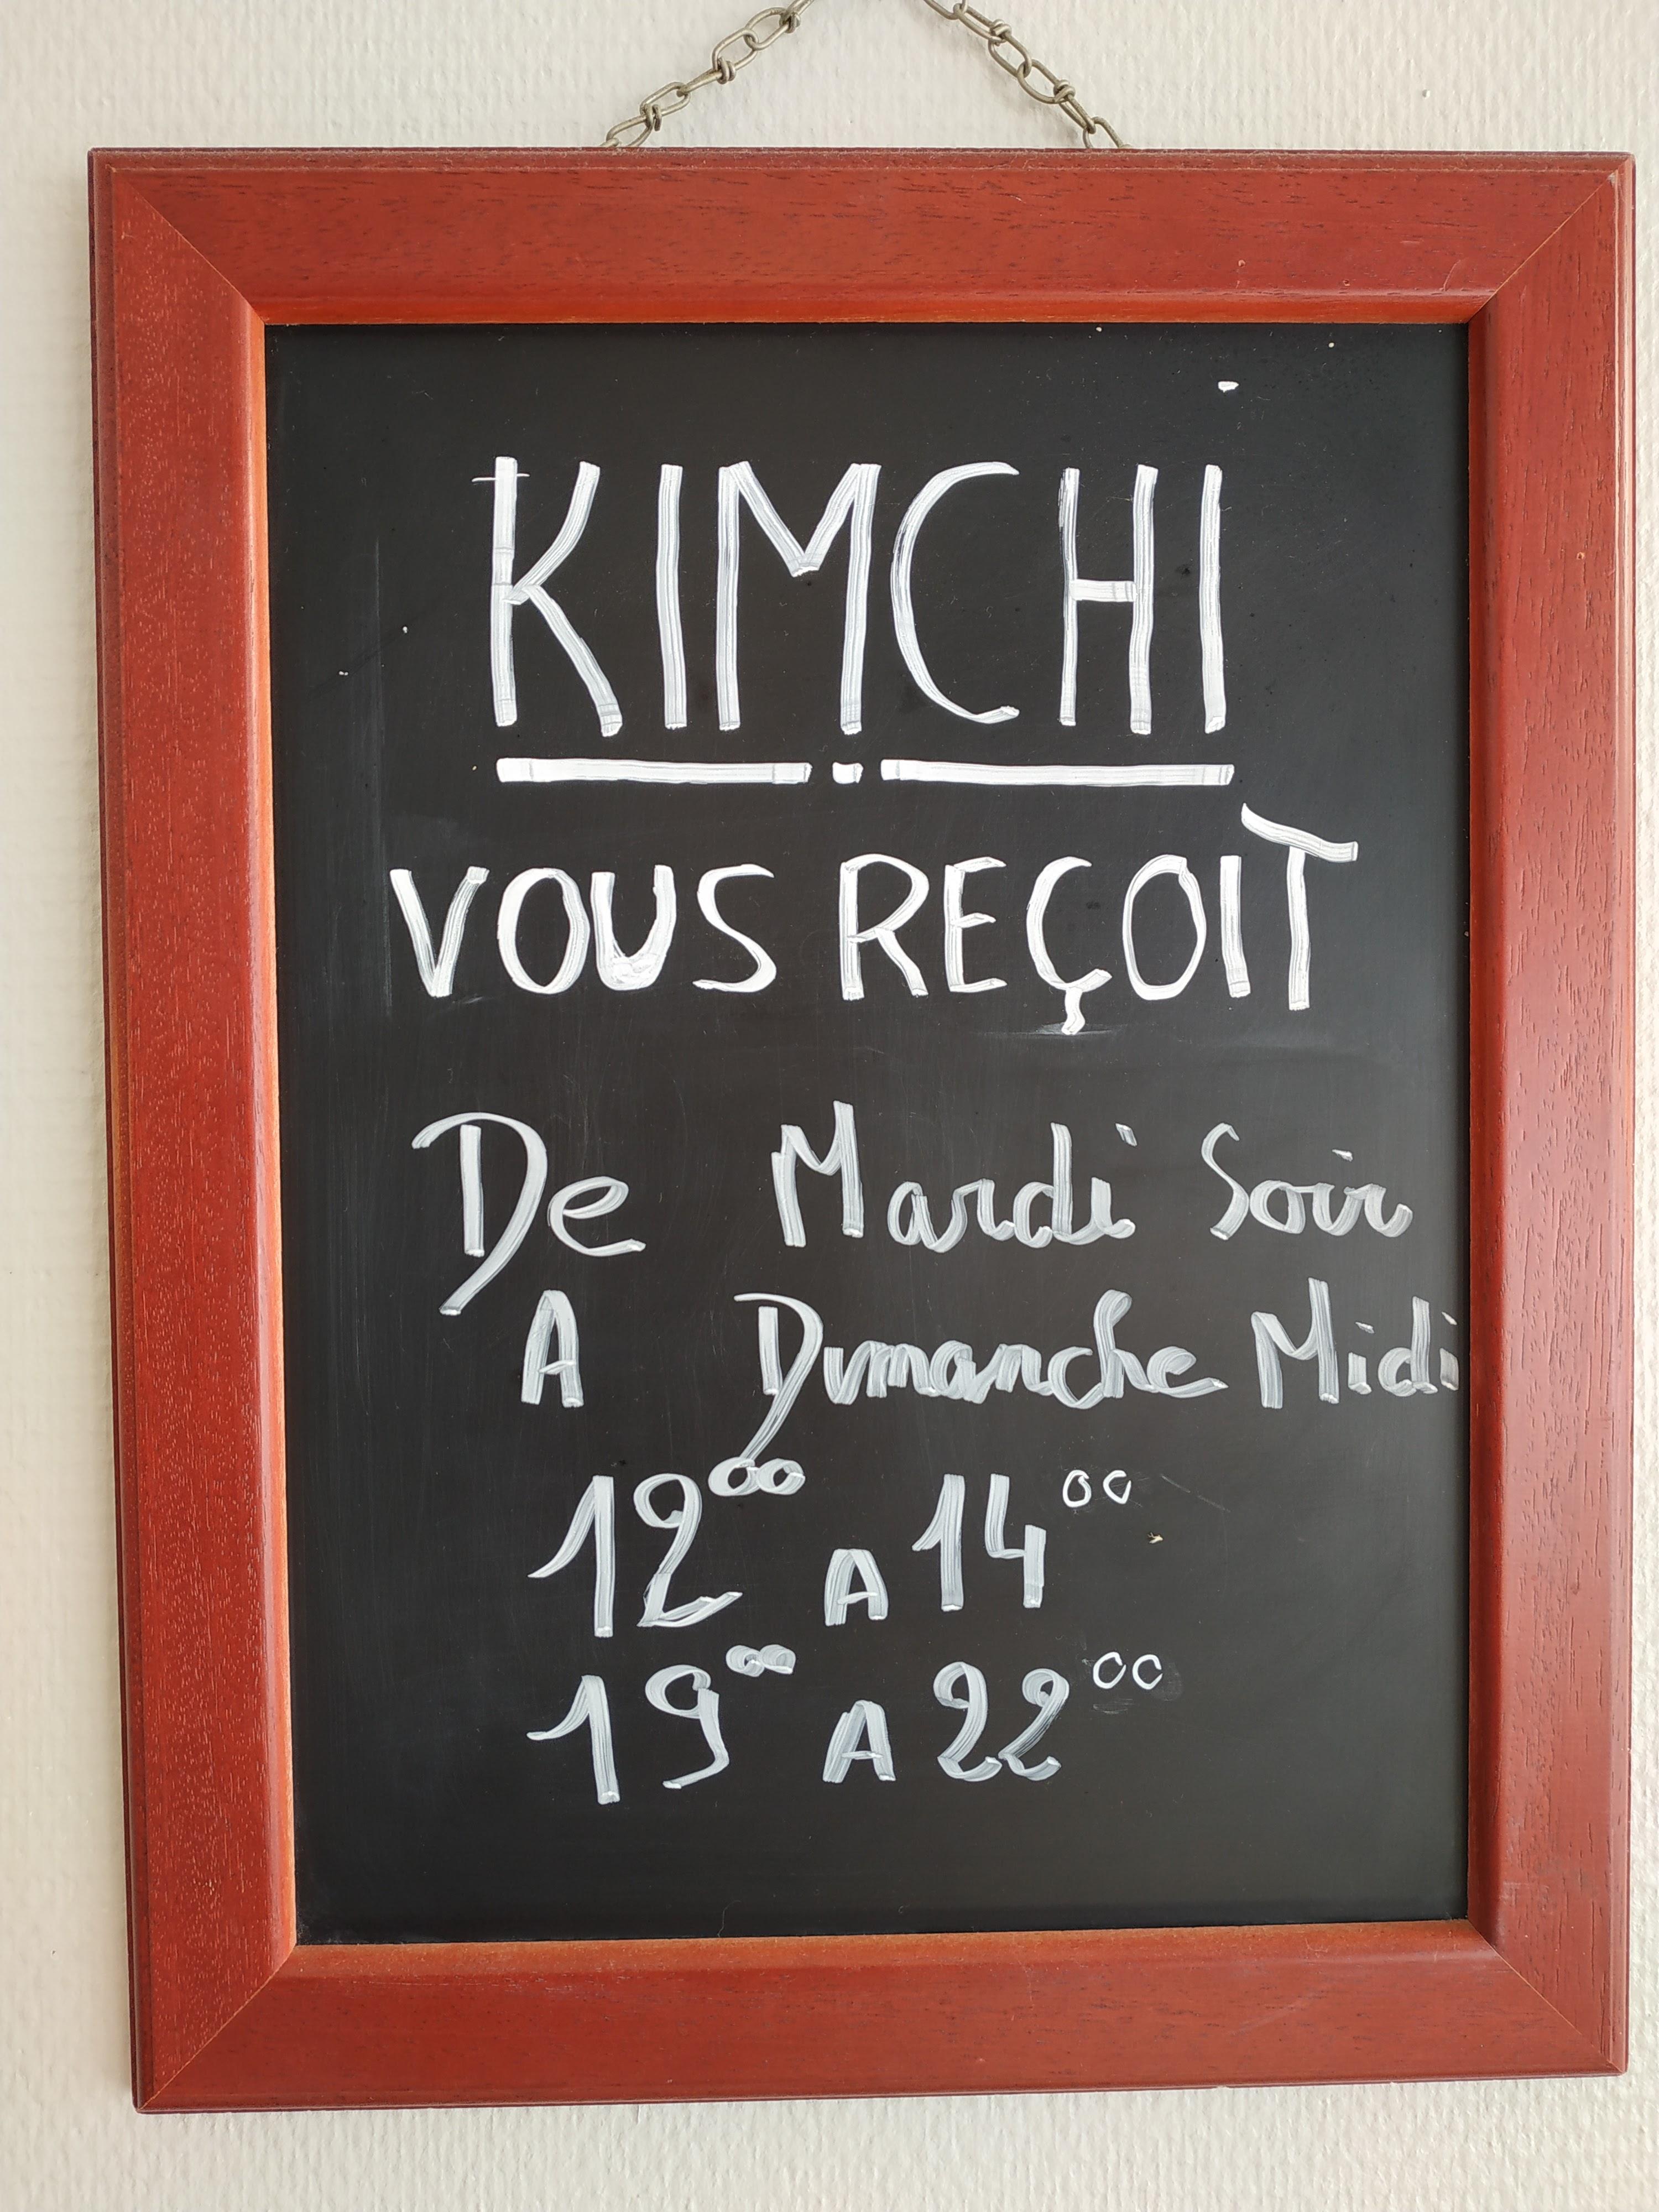 KIMCHI
VOUS REÇOIT
De Mardi Soir
A Dimanche Midi
12⁰⁰ A 14⁰⁰
19⁰⁰ A 22⁰⁰